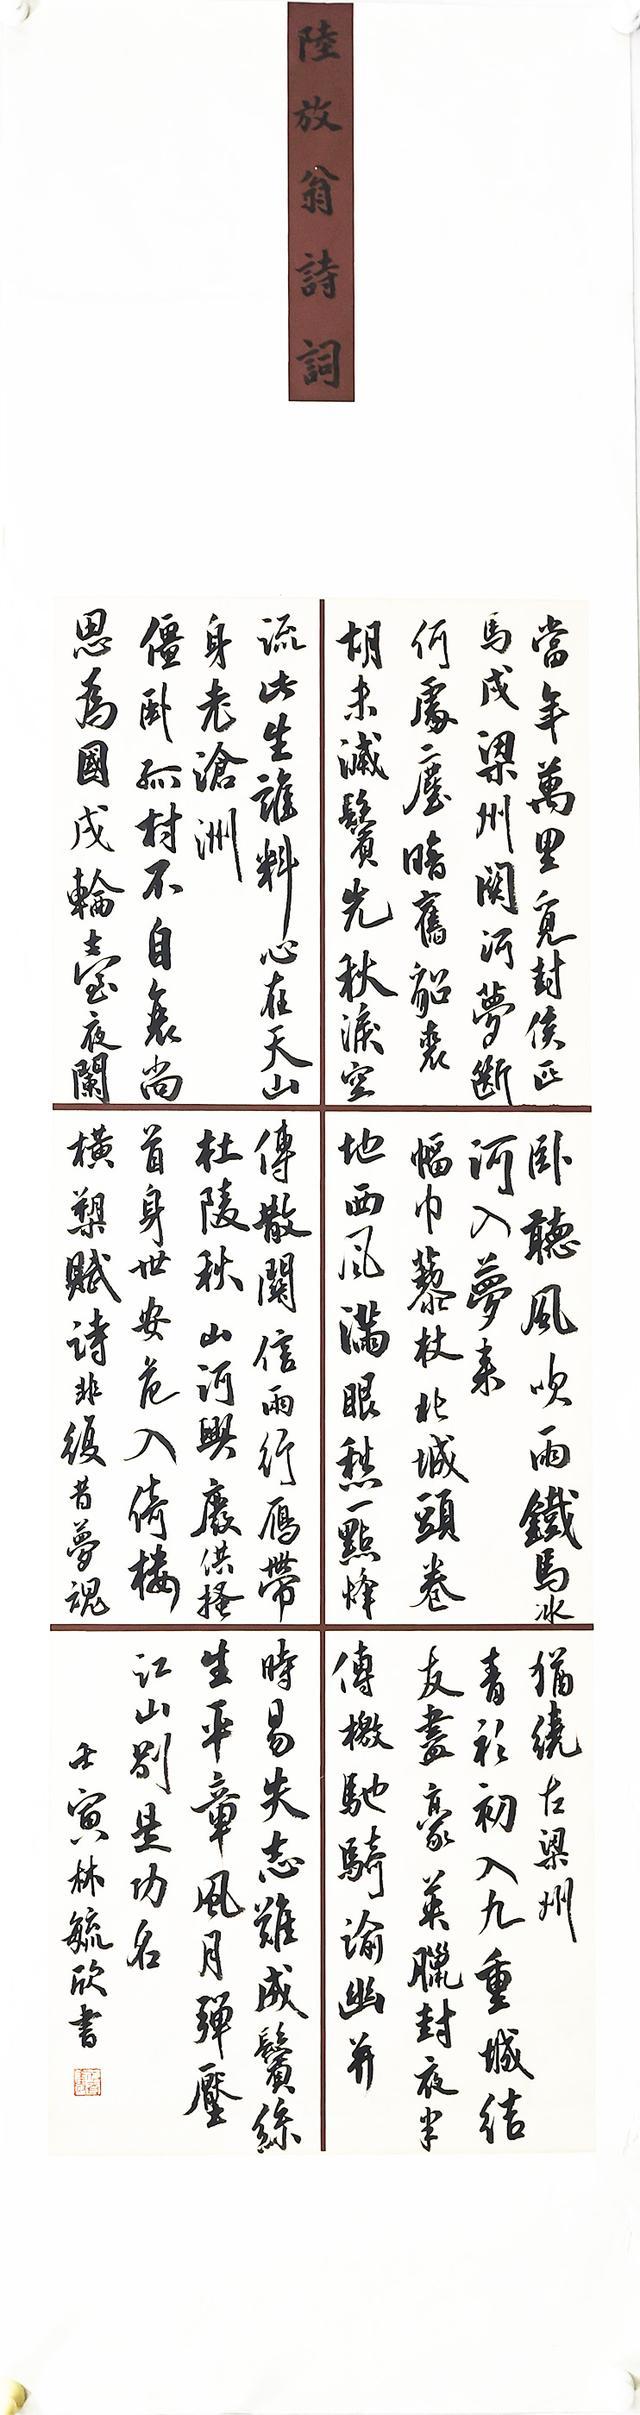 陸放翁詩詞
當年萬里覓封侯匹
馬戍梁州關河夢斷
何處塵暗舊貂裘
胡未滅鬢先秋淚空
流此生誰料心在天山
身老滄洲
僵臥孤村不自哀尚
思為國戍輪臺夜闌
臥聽風吹雨鐵馬冰
河入夢来
幅巾藜杖北城頭卷
地西風滿眼愁一點烽
傳散關信兩行雁帶
杜陵秋山河興廢供搔
首身世安危入倚樓
橫槊賦詩非復昔夢魂
猶繞古梁州
青衫初入九重城結
友盡豪英臘封夜半
傳檄馳騎諭幽并
時易失志難成鬢絲
生平章風月彈壓
江山別是功名
壬寅林毓欣書